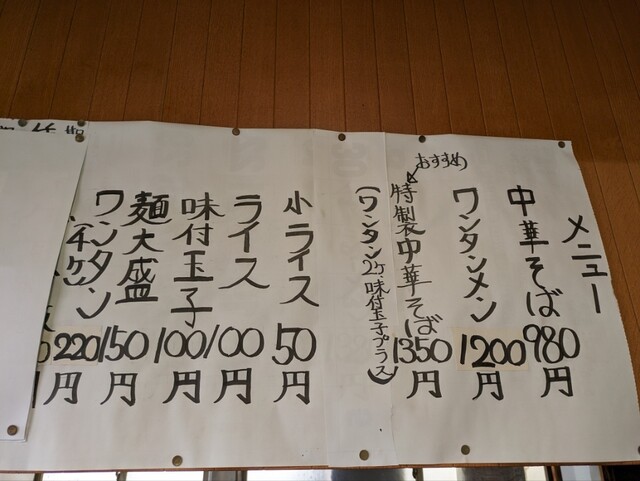 メニュー
中華そば 980円
ワンタンメン 1200円
おすすめ
特製中華そば 1350円
(ワンタン2ヶ味付玉子プラス)
小ライス 50円
ライス 100円
味付玉子 100円
麺大盛 150円
ワンタン 220円
円